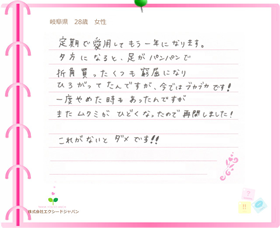 岐阜県　28歳　女性
定期で愛用してもう一年になります。
夕方になると、足がパンパンで
折角買ったくつも窮屈になり
ひろがってたんですが、今ではブカブカです!
一度やめた時もあったんですが
またムクミがひどくなったので再開しました!
これがないとダメです!!
株式会社エクシードジャパン